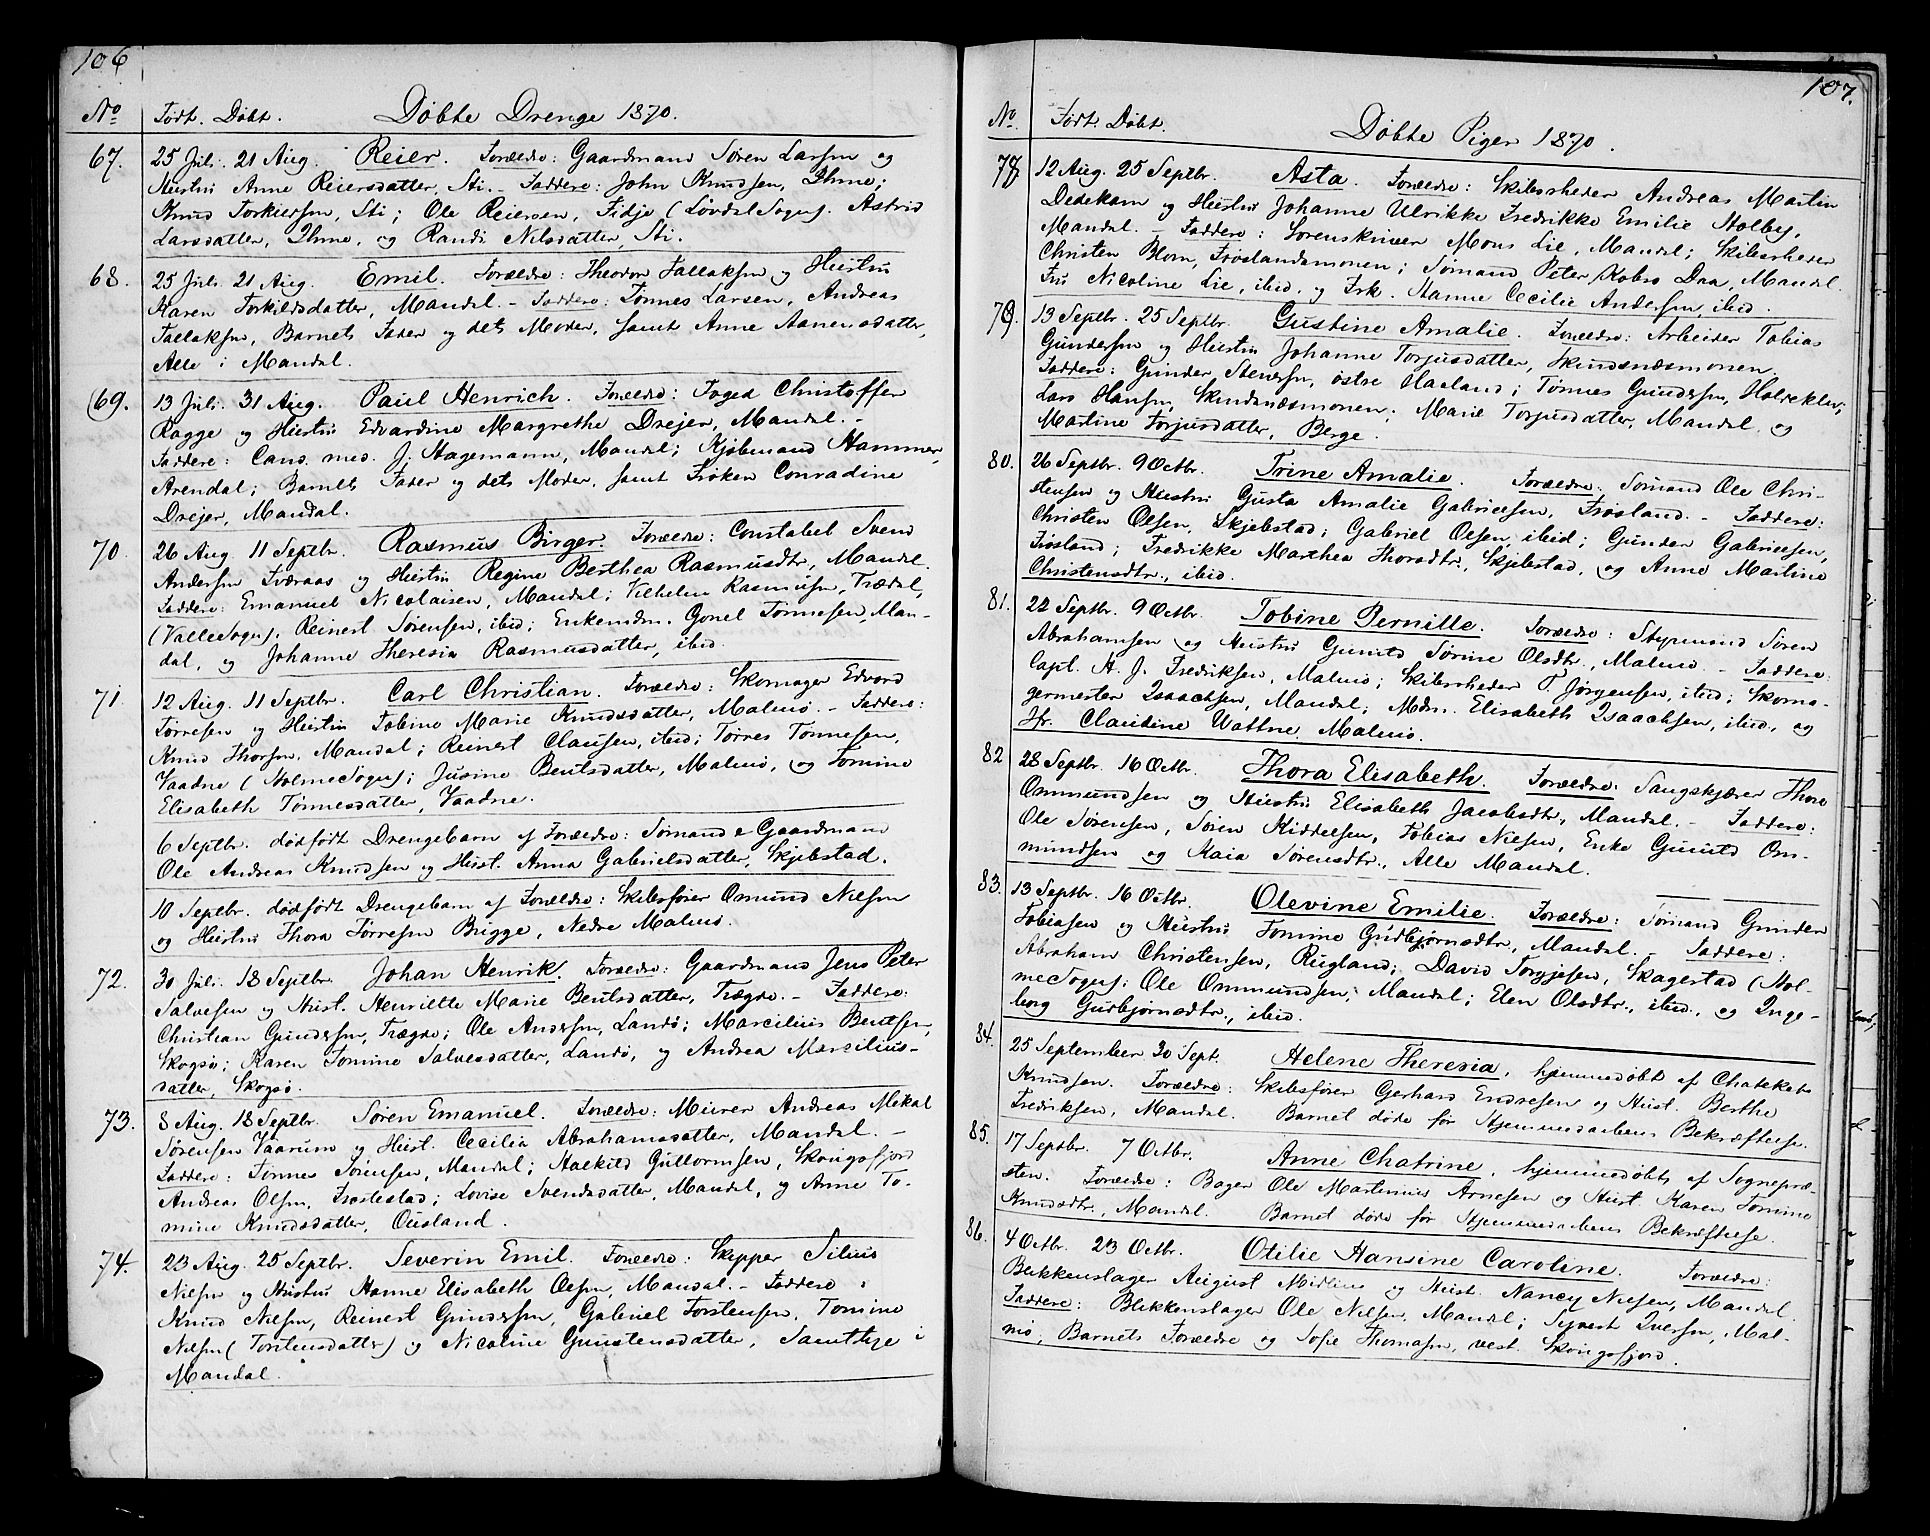 106
No Født. Døbt. Døbte Drenge 1870.
67. 25 Juli. 21 Aug. Reier. Forældre: Gaardmand Søren Larsen og
Hustru Anne Reiersdatter, Sti. - Faddere: John Knudsen, Ihme;
Knud Torkiersen, Sti; Ole Reiersen, Fidje (Løvdal Sogn). Astrid
Larsdatter, Ihme, og Randi Nilsdatter, Sti.
68. 25 Juli. 21 Aug. Emil. Forældre: Theodor Tallaksen og Hustru
Karen Torkildsdatter, Mandal. - Faddere: Tønnes Larsen, Andreas
Tallaksen, Barnets Fader og dets Moder, samt Anne Aanensdatter,
Alle i Mandal.
(69. 13 Juli. 31 Aug. Paul Henrich. Forældre: Foged Christoffer
Ragge og Hustru Edvardine Margrethe Drejer, Mandal. -
Faddere: Cand. med. J. Hagemann, Mandal; Kjøbmand Hammer,
Arendal; Barnets Fader og dets Moder, samt Frøken Conradine
Drejer, Mandal.
70. 26 Aug. 11 Septbr. Rasmus Birger. Forældre: Constabel Svend
Andersen Sværaas og Hustru Regine Berthea Rasmusdtr, Mandal.
Faddere: Emanuel Nicolaisen, Mandal; Vilhelm Rasmusen, Trædal,
(Valle Sogn). Reinert Sørensen, ibid; Enkemdm. Gonel Tønnesen, Man-
dal, og Johanne Theresia Rasmusdatter, ibid.
71. 12 Aug. 11 Septbr. Carl Christian. Forældre: Skomager Edvard
Tørresen og Hustru Tobine Marie Knudsdatter, Malmø. - Faddere:
Knud Thorsen, Mandal; Reinert Clausen, ibid; Tørres Tønnesen,
Vaadne (Holme Sogn); Jusine Bentsdatter, Malmø, og Tomine
Elisabeth Tønnesdatter, Vaadne.
6 Septbr. dødfødt Drengebarn af Forældre: Sømand & Gaardmand
Ole Andreas Knudsen og Hust. Anna Gabrielsdatter, Skjebstad.
10 Septbr. dødfødt Drengebarn af Forældre: Skibsfører Omund Nielsen
og Hustru Thora Tørresen Brigge, Nedre Malmø.
72. 30 Juli. 18 Septbr. Johan Henrik. Forældre: Gaardmand Jens Peter
Salvesen og Hust. Henriette Marie Bentsdatter, Trægde. - Faddere:
Christian Gundersen, Trægde; Ole Andersen, Landø; Marcilius Bentsen,
Skogsø; Karen Tomine Salvesdatter, Landø, og Andrea Marsilius-
datter, Skogsø.
73. 8 Aug. 18 Septbr. Søren Emanuel. Forældre: Murer Andreas Mekal
Sørensen Vaarum og Hust. Cecilia Abrahamsdatter, Mandal. -
Faddere: Tønnes Sørensen, Mandal; Haekild Guttormsen, Skongsfjord
Andreas Olsen, Frostestad; Lovise Svendsdatter, Mandal, og Anne To-
mine Knudsdatter, Ousland.
74. 23 Aug. 25 Septbr. Severin Emil. Forældre: Skipper Silius
Nielsen og Hustru Hanne Elisabeth Olsen, Mandal. - Faddere:
Knud Nielsen, Reinert Gundersen, Gabriel Torstensen, Tomine
Nielsen (Torstensdatter) og Nicoline Gunstensdatter, Samtlige i
Mandal.
107.
No. Født. Døbt. Døbte Piger 1870.
78 12 Aug. 25 Septbr. Asta. Forældre: Skibsrheder Andreas Martin
Dedekam og Hustru Johanne Ulrikke Fredrikke Emilie Holby,
Mandal. - Faddere: Sorenskriver Mons Lie, Mandal; Skibsrheder
Christen Blom, Frøslandsmonen; Sømand Peter Kobro Daa, Mandal.
Fru Nicoline Lie, ibid, og Frk. Hanne Cecilie Andersen, ibid.
79. 13 Septbr. 25 Septbr. Gustine Amalie. Forældre: Arbeider Tobias
Gundersen og Hustru Johanne Torjusdatter, Skindsnæsmonen.
Faddere: Gunder Stensen, østre Haaland; Tønnes Gundersen, Holteklev;
Lars Hansen, Skindsnæsmonen; Marie Torjusdatter, Mandal, og
Martine Torjusdatter, Berge.
80. 26 Septbr. 9 Octbr. Trine Amalie. Forældre: Sømand Ole Chri-
stensen og Hustru Gusta Amalie Gabrielsen, Frøsland. - Faddere:
Christen Olsen, Skjebstad; Gabriel Olsen, ibid; Gunder Gabrielsen,
Frøsland; Fredrikke Marthea Thorsdtr, Skjebstad, og Anne Martine
Christensdtr., ibid.
81. 22 Septbr. 9 Octbr. Tobine Pernille. Forældre: Styrmand Søren
Abrahamsen og Hustru Gunild Sørine Olsdtr., Malmø. - Faddere:
Capt. H. J. Fredriksen, Malmø; Skibsrheder T. Jørgensen, ibid; Skoma-
germester Isaachsen, Mandal; Mdm. Elisabeth Isaachsen, ibid, og
Fr. Claudine Wattne, Malmø.
82 28 Septbr. 16 Octbr. Thora Elisabeth. Forældre: Saugskjærer Thore
Ommundsen og Hustru Elisabeth Jacobsdtr, Mandal. - Faddere:
Ole Sørensen, Søren Kiddelsen, Tobias Nielsen, Enke Gunild Om-
mundsen og Kaia Sørensdtr., Alle Mandal.
83. 13 Septbr. 16 Octbr. Olevine Emilie. Forældre: Sømand Gunder
Tobiasen og Hustru Tomine Gudbjørnsdtr, Mandal. - Faddere:
Abraham Christensen, Rugland; David Torgjesen, Skagestad (Hol-
me Sogn); Ole Ommundsen, Mandal; Elen Olsdtr., ibid., og Inge-
borg Gudbjørnsdtr., ibid.
84. 25 September. 30 Sept. Helene Theresia, hjemmedøbt af Chateket
Knudsen. Forældre: Skibsfører Gerhard Endresen og Hust. Berthe
Fredriksen, Mandal. Barnet døde før Hjemmedaabens Bekræftelse.
85. 17 Septbr. 7 Octbr. Anne Chatrine, hjemmedøbt af Sognepræ-
sten. Forældre: Bager Ole Martinius Arnesen og Hust. Karen Tomine
Knudsdtr., Mandal. Barnet døde før Hjemmedaabens Bekræftelse.
86. 4 Octbr. 23 Octbr. Otilie Hansine Caroline. Forældre:
Blikkenslager August og Hust. Nancy Nielsen, Mandal.
Faddere: Blikkenslager Ole Nielsen, Mandal; Syvert Iversen, Mal-
mø; Barnets Forældre og Sofie Thomasen, vest. Skongsfjord.